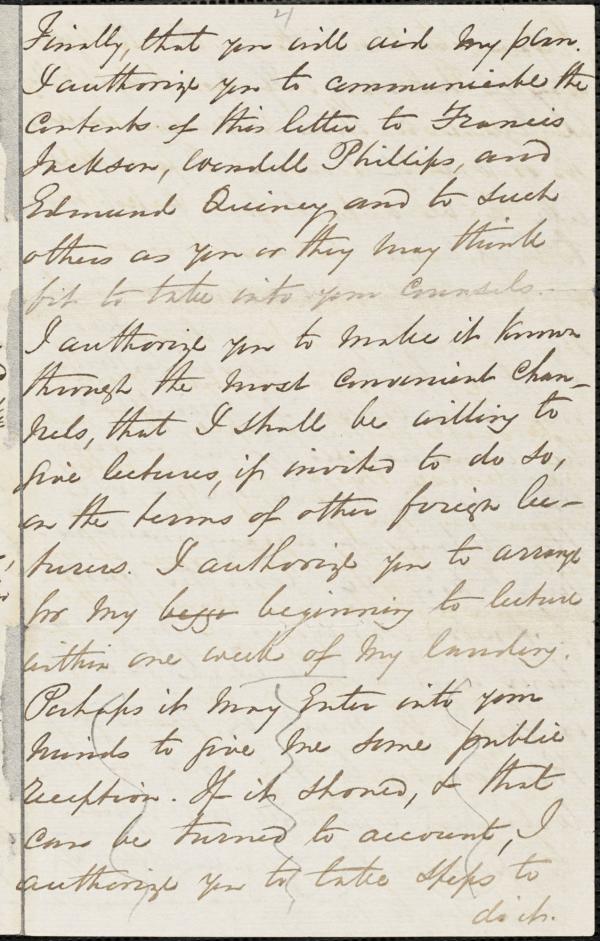 4
Finally, that you will aid my plan.
I authorize you to communicate the
contents of this letter to Francis
Jackson, Wendell Phillips, and
Edmund Quincy and to such
others as you or they may think
fit to take into your counsels.—
I authorize you to make it known
through the most convenient chan-
nels, that I shall be willing to
give lectures, if invited to do so,
on the terms of other foreign lec-
turers. I authorize you to arrange
for my beggi beginning to lecture
within one week of my landing.
Perhaps it may enter into your
minds to give me some public
reception. If it should, & that
can be turned to account, I
authorize you to take steps to
do it.